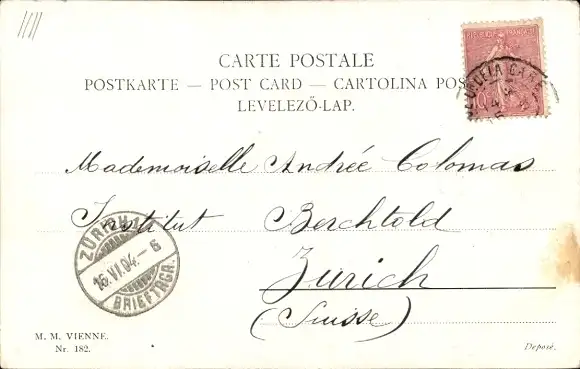 CARTE POSTALE
POSTKARTE — POST CARD — CARTOLINA POS
LEVELEZŐ-LAP.
REPUBLIQUE FRANÇAISE
10
GARE
4
Mademoiselle Andrée Colomas
Institut Berchtold
Zurich
(Suisse)
ZÜRICH 1
15.VI.04.-6
BRIEFTRGR.
M. M. VIENNE.
Nr. 182.
Deposé.